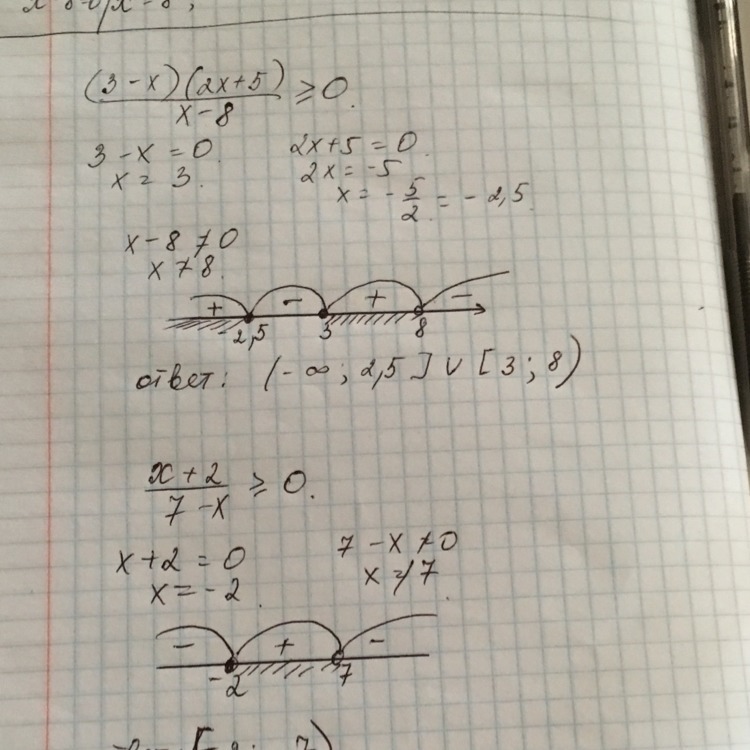 (3-x)(2x+5)/(x-8) ≥ 0.
3-x=0. 2x+5=0.
x=3. 2x=-5
x=-5/2=-2,5.
x-8≠0
x≠8.
+ - + -
-2,5 3 8
ответ: (-∞; 2,5]∪[3; 8)
(x+2)/(7-x) ≥ 0.
x+2=0 7-x≠0
x=-2. x≠7.
- + -
-2 7